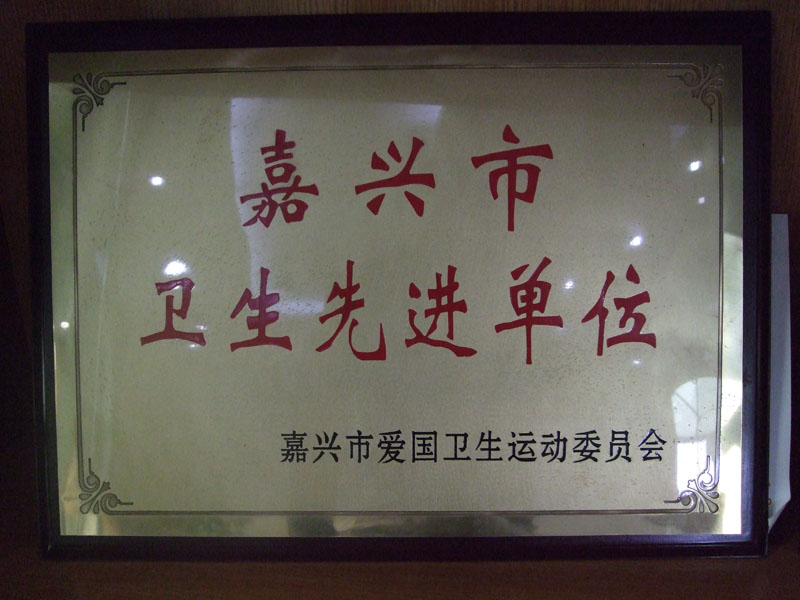 嘉兴市
卫生先进单位
嘉兴市爱国卫生运动委员会